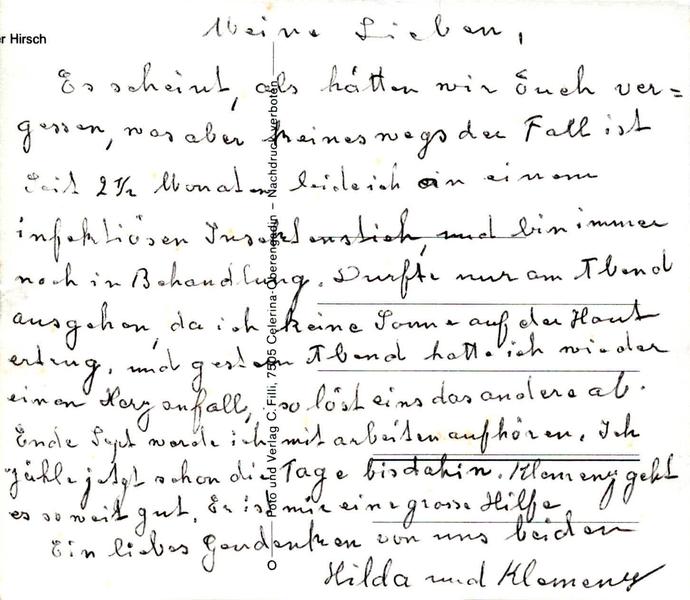 er Hirsch
Meine Lieben,
Es scheint, als hätten wir Euch ver=
gessen, was aber keineswegs der Fall ist
Seit 2½ Monaten leide ich an einem
infektiösen Insektenstich, und bin immer
noch in Behandlung. Durfte nur am Abend
ausgehen, da ich keine Sonne auf der Haut
ertrug, und gestern Abend hatte ich wieder
einen Herzanfall, so löst eins das andere ab.
Ende Sept werde ich mit arbeiten aufhören. Ich
zähle jetzt schon die Tage bis dahin. Klemens geht
es soweit gut. Er ist mir eine grosse Hilfe
Ein liebes Gendenken von uns beiden
Hilda und Klemens
Foto und Verlag C. Filli, 7505 Celerina-Oberengadin – Nachdruck verboten